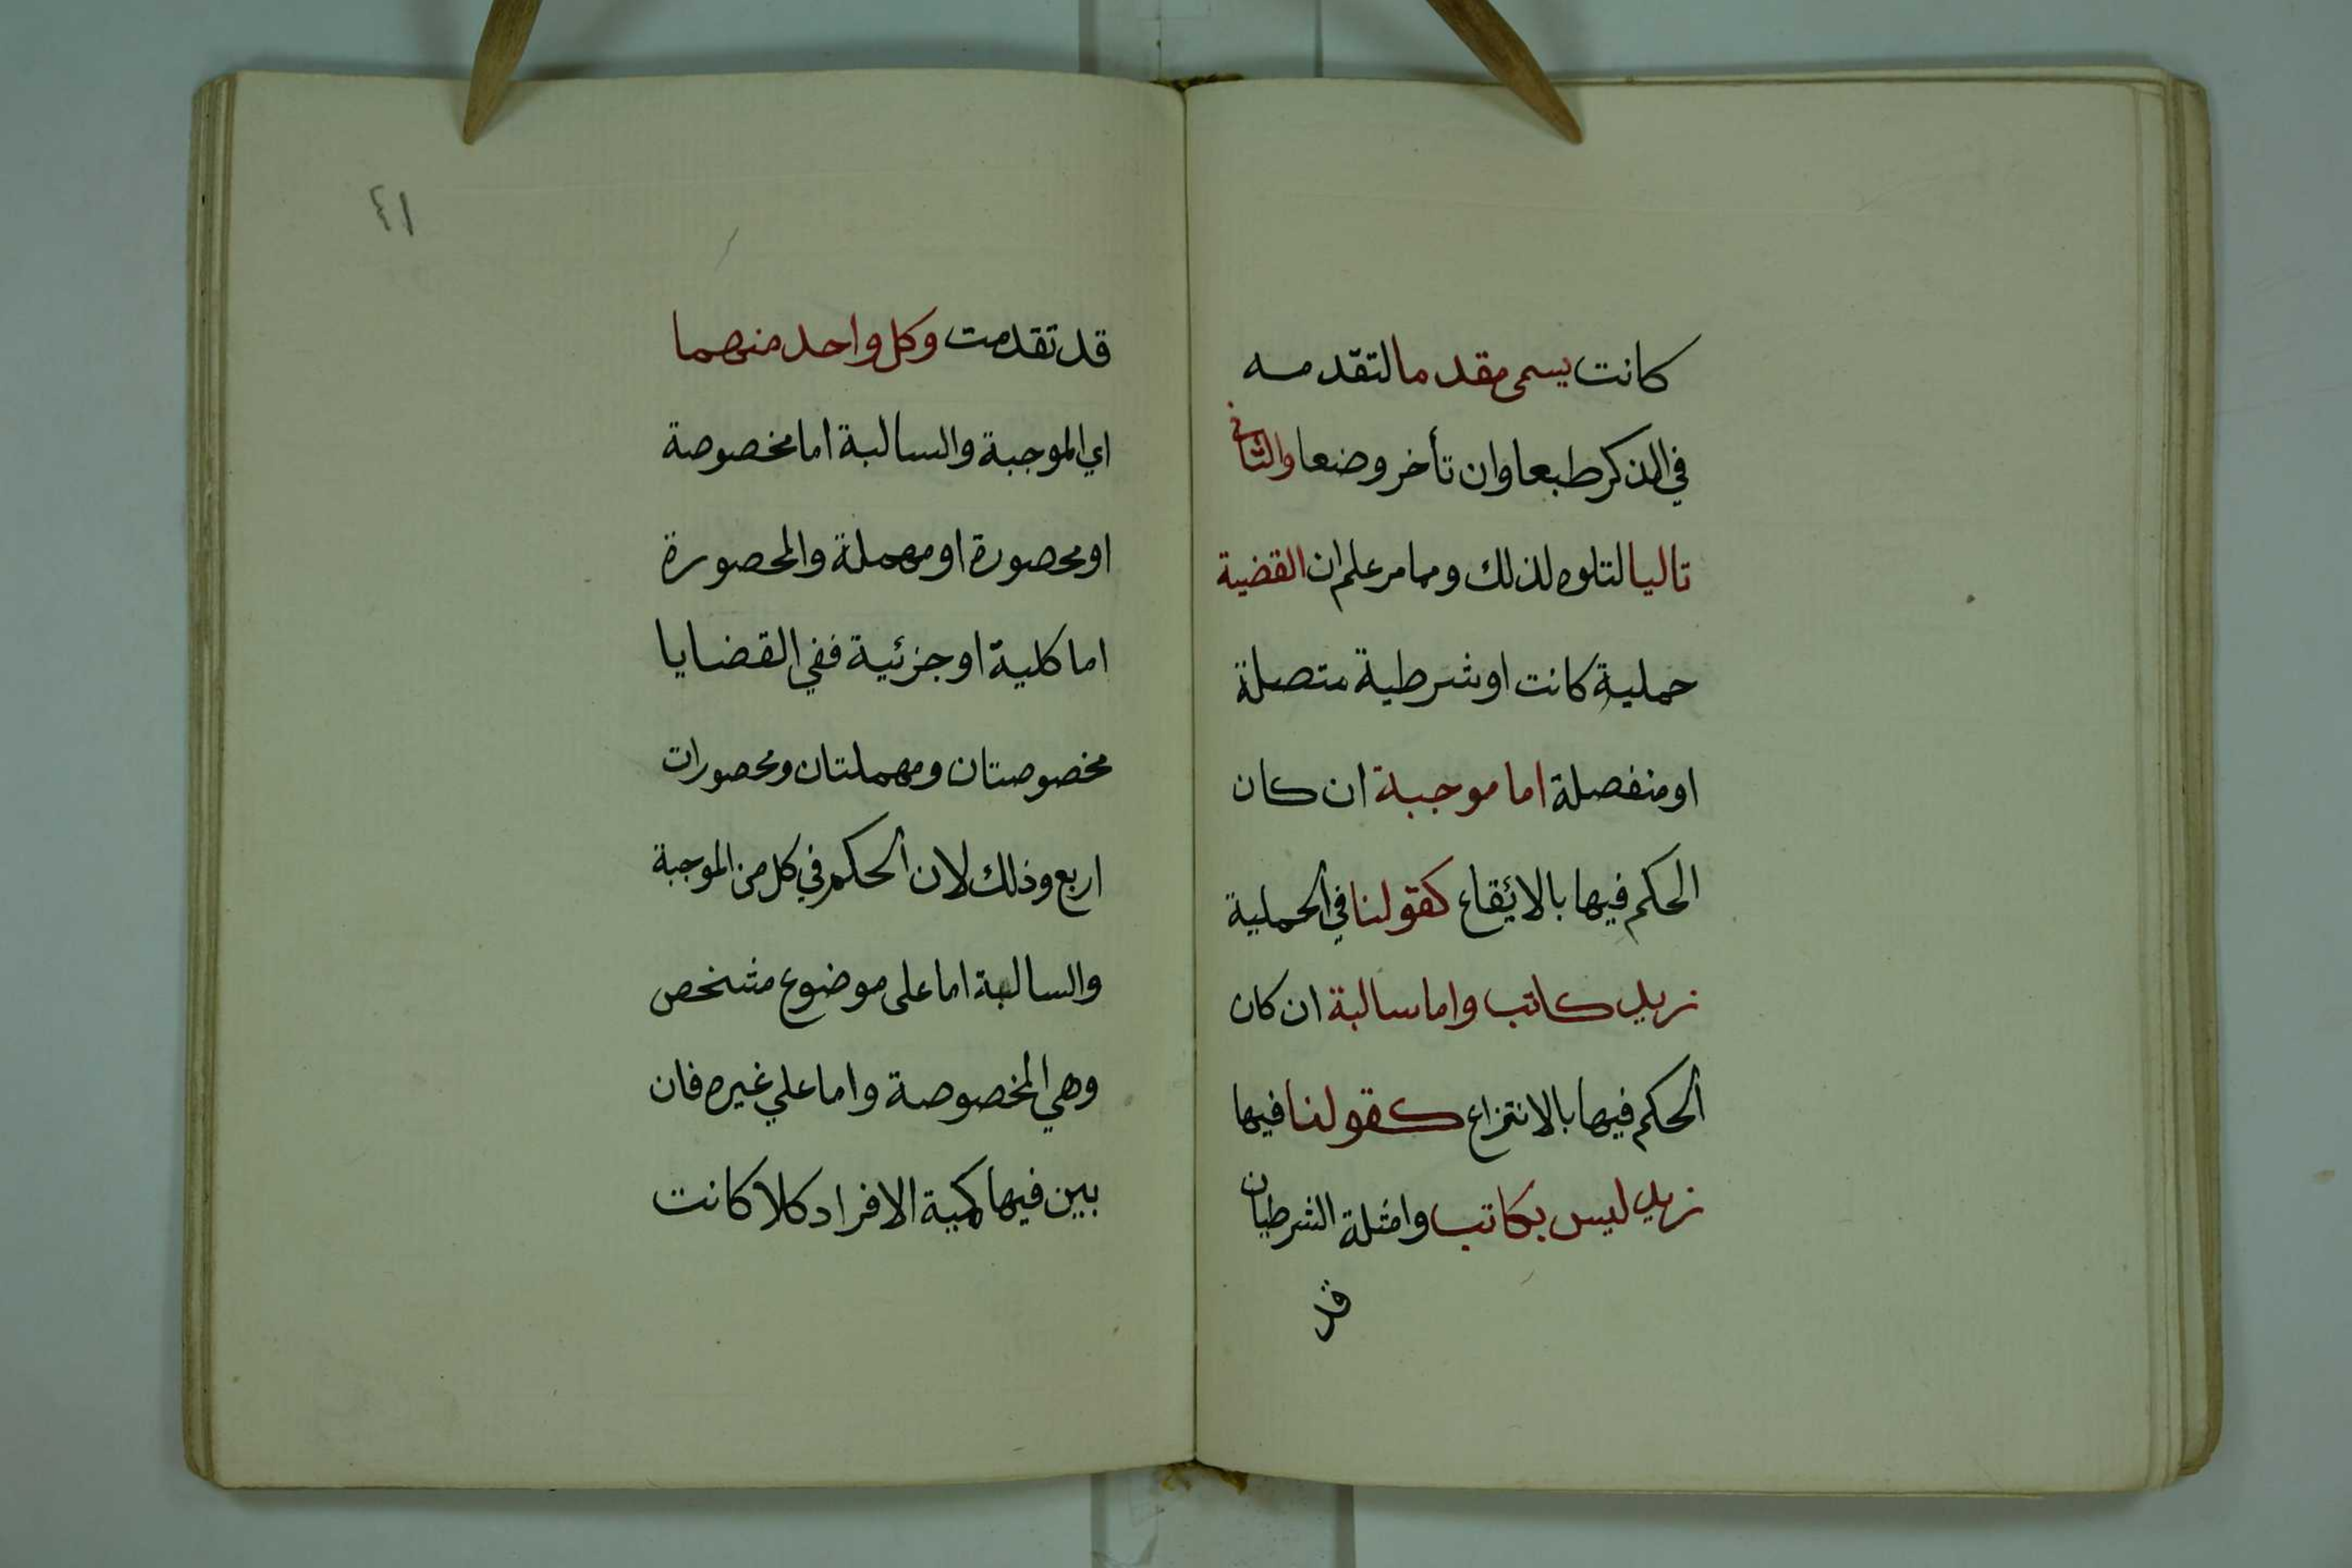 كانت يسمى مقدما لتقدمه
في الذكر طبعا وان تأخر وضعا والثاني
تاليا لتلوه لذلك ومما مر علم ان القضية
حملية كانت او شرطية متصلة
او منفصلة اما موجبة ان كان
الحكم فيها بالائقاع كقولنا في الحملية
زيد كاتب واما سالبة ان كان
الحكم فيها بالانتزاع كقولنا فيها
زيد ليس بكاتب وامثلة الشرطيان
قد
٤١
قد تقدمت وكل واحد منهما
اي الموجبة والسالبة اما مخصوصة
او محصورة او مهملة والمحصورة
اما كلية او جزئية ففي القضايا
مخصوصتان ومهملتان ومحصورات
اربع وذلك لان الحكم في كل من الموجبة
والسالبة اما على موضوع مشخص
وهي المخصوصة واما علي غيره فان
بين فيها كمية الافراد كلا كانت